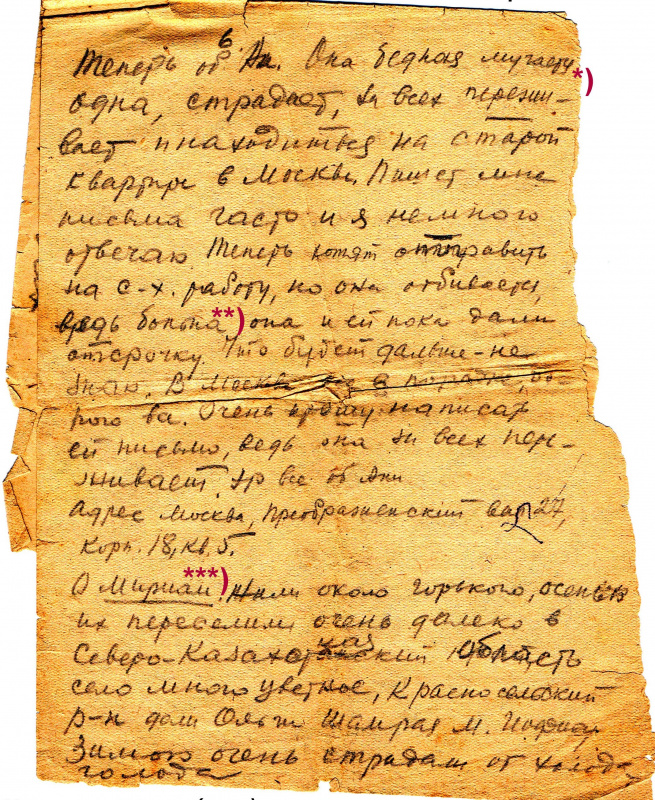 Теперь об Ан. Она бедная мучается *)
одна, страдает, за всех пережи-
вает и находиться на старой
квартире в Москве. Пишет мне
письма часто и я немного
отвечаю Теперь хотят отправить
на с-х. работу, но она отбивается,
ведь больна **) она и ей пока дали
отсрочку. Что будет дальше - не
знаю. В Москве все в порядке,
Очень прошу написать
ей письмо, ведь она за всех пере-
живает. все об Ани
адрес Москва, Преображенский вал 27,
корп. 18, кв. 5.
О Мириам ***) Жили около Горького, осенью
их переселили очень далеко в
Северо-Казахстанский область
село много цветное, Красноселский
р-н дом Ольги Шамрая М.
Зимою очень страдали от холода
голода